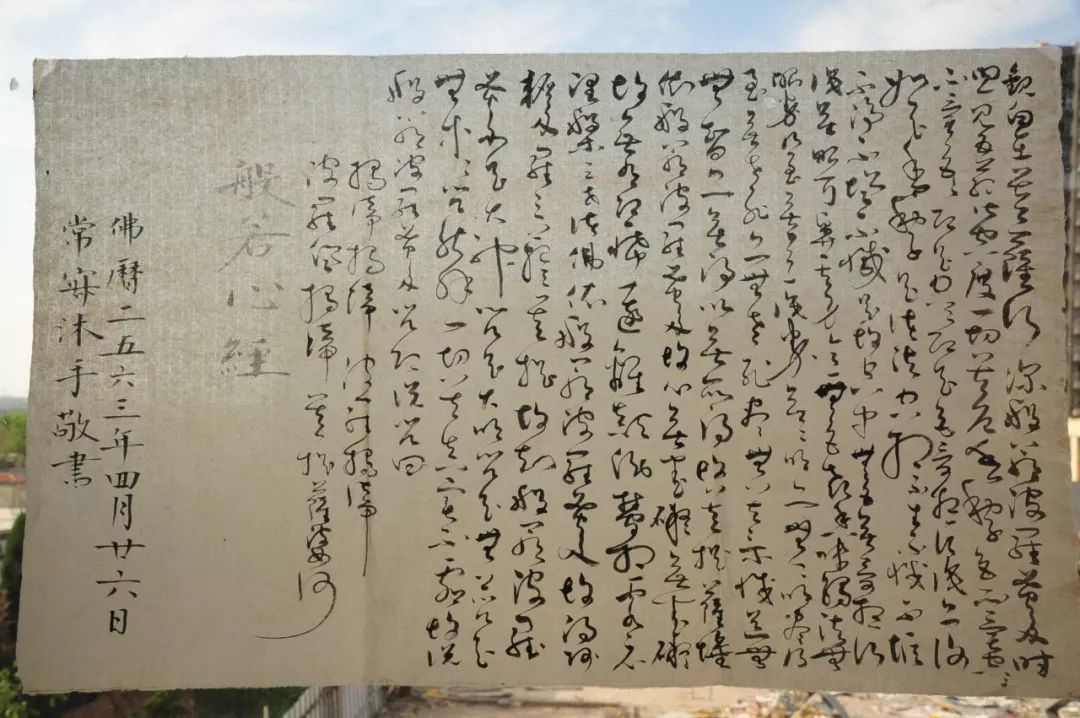 觀自在菩薩行深般若波羅蜜多時
照見五蘊皆空度一切苦厄舍利子色不異空
空不異色色即是空空即是色受想行識亦復
如是舍利子是諸法空相不生不滅不垢
不淨不增不減是故空中無色無受想行
識無眼耳鼻舌身意無色聲香味觸法無
眼界乃至無意識界無無明亦無無明盡乃
至無老死亦無老死盡無苦集滅道無
無智亦無得以無所得故菩提薩埵
依般若波羅蜜多故心無罣礙無罣礙
故無有恐怖遠離顛倒夢想究竟
涅槃三世諸佛依般若波羅蜜多故得阿
耨多羅三藐三菩提故知般若波羅
蜜多是大神咒是大明咒是無上咒是
無等等咒能除一切苦真實不虛故說
般若波羅蜜多咒即說咒曰
揭諦揭諦 波羅揭諦
波羅僧揭諦 菩提薩婆訶
般若心經
佛曆二五六三年四月廿六日
常沐手敬書